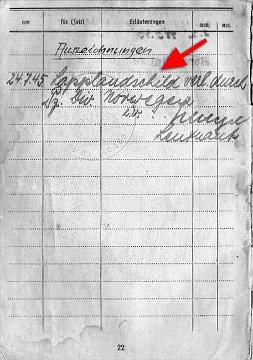 cm für (Zeit) Erläuterungen
Auszeichnungen
24.7.45 Lapplandschild verl. durch
Pz. Div. Norwegen
Leutnant
22